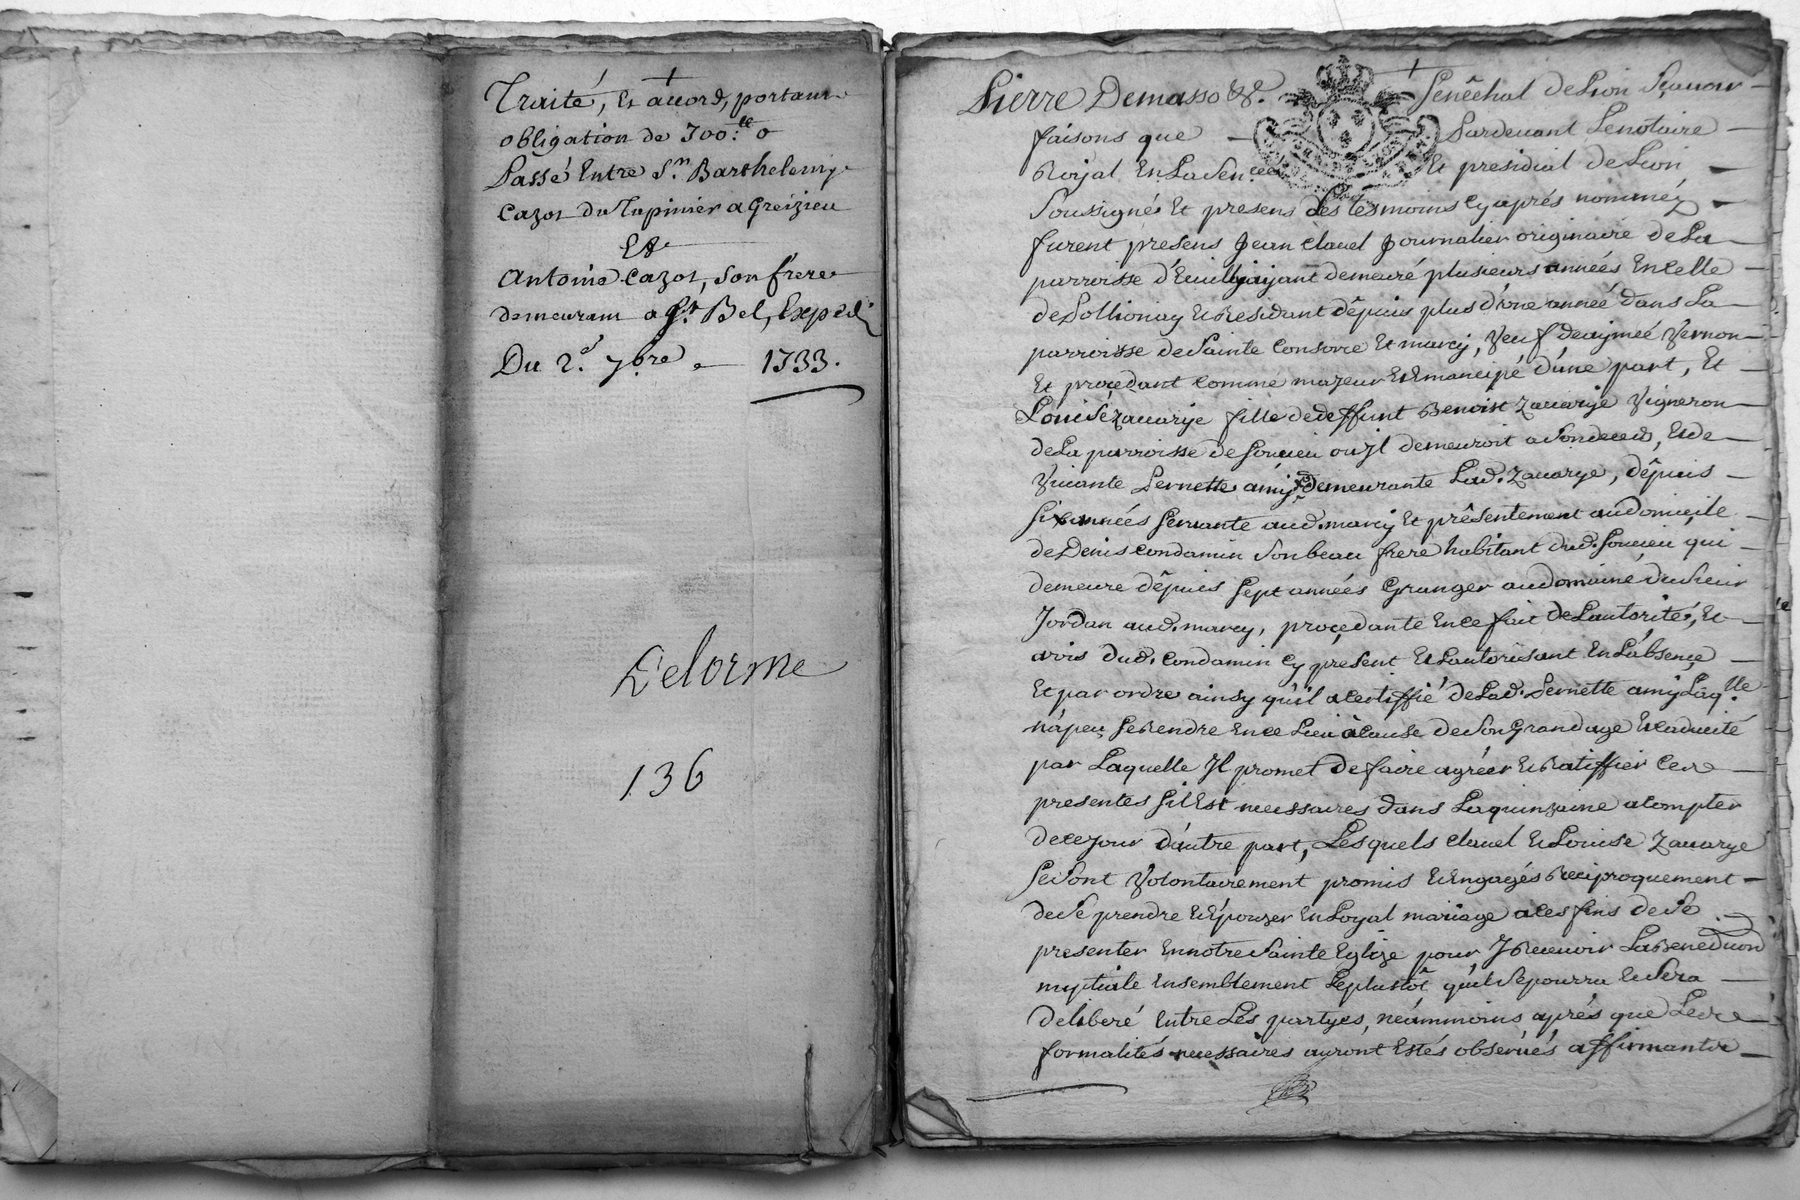 Traité, Et accord, portant
obligation de 300:ᵗᵗ o
Passé Entre Sr. Barthelemy
Cazot du Tupinier a Greizieu
Et
Antoine Cazot, son frere
demeurant a St. Bel, Exped.
Du 2.e 7bre 1733.
Delorme
136
Pierre Demasso &c. Senêchal de Lion Sçavoir
faisons que Pardevant Le notaire
Royal En La Sen.cee Et presidial de Lion
Soussigné Et presens des tesmoins Cy aprés nommez
furent presens Jean Clauel Journalier originaire de La
parroisse d'Euilly ayant demeuré plusieurs années En celle
de Pollionay Et Residant dêpuis plus d'une année dans La
parroisse de Sainte Consorce Et marcy, Veuf de aymeé Vernon
Et procedant comme majeur Et Emancipé d'une part, Et
Loüise Zacarye fille de deffunt Benoist Zacarye Vigneron
de La parroisse de Soucieu ou Jl demeuroit a Son deced, Et de
Viuante Pernette amy demeurante Lad. Zacarye, dêpuis
Six années Seruante aud. marcy Et prêsentement au domicile
de Denis Condamin Son beau frere habitant dud. Soucieu qui
demeure dêpuis Sept années Granger au domaine du Sieur
Jordan aud. marcy, procedante En ce fait de L'autorité, Et
avis dud. Condamin Cy present Et L'autorisant En L'absence
Et par ordre ainsy qu'il a certiffié de Lad. Pernette amy Laq.lle
n'a peu Se Rendre En ce Lieu à cause de Son Grand age Et caducité
par Laquelle Jl promet de faire agréer Et Ratiffier Ces
presentes Sil Est necessaires dans La quinzaine a compter
de ce jour d'autre part, Lesquels Clauel Et Louise Zacarye
Se Sont Volontairement promis Et Engagés Reciproquement
de Se prendre Et Épouzer En Loyal mariage a ces fins de Se
presenter En notre Sainte Eglize pour J Recevoir La Benediction
nuptiale Ensemblement Le plustôt qu'il Se pourra Et Sera
deliberé Entre Les partyes, neâmmoins aprés que Les
formalités necessaires auront Estés observés affirmant